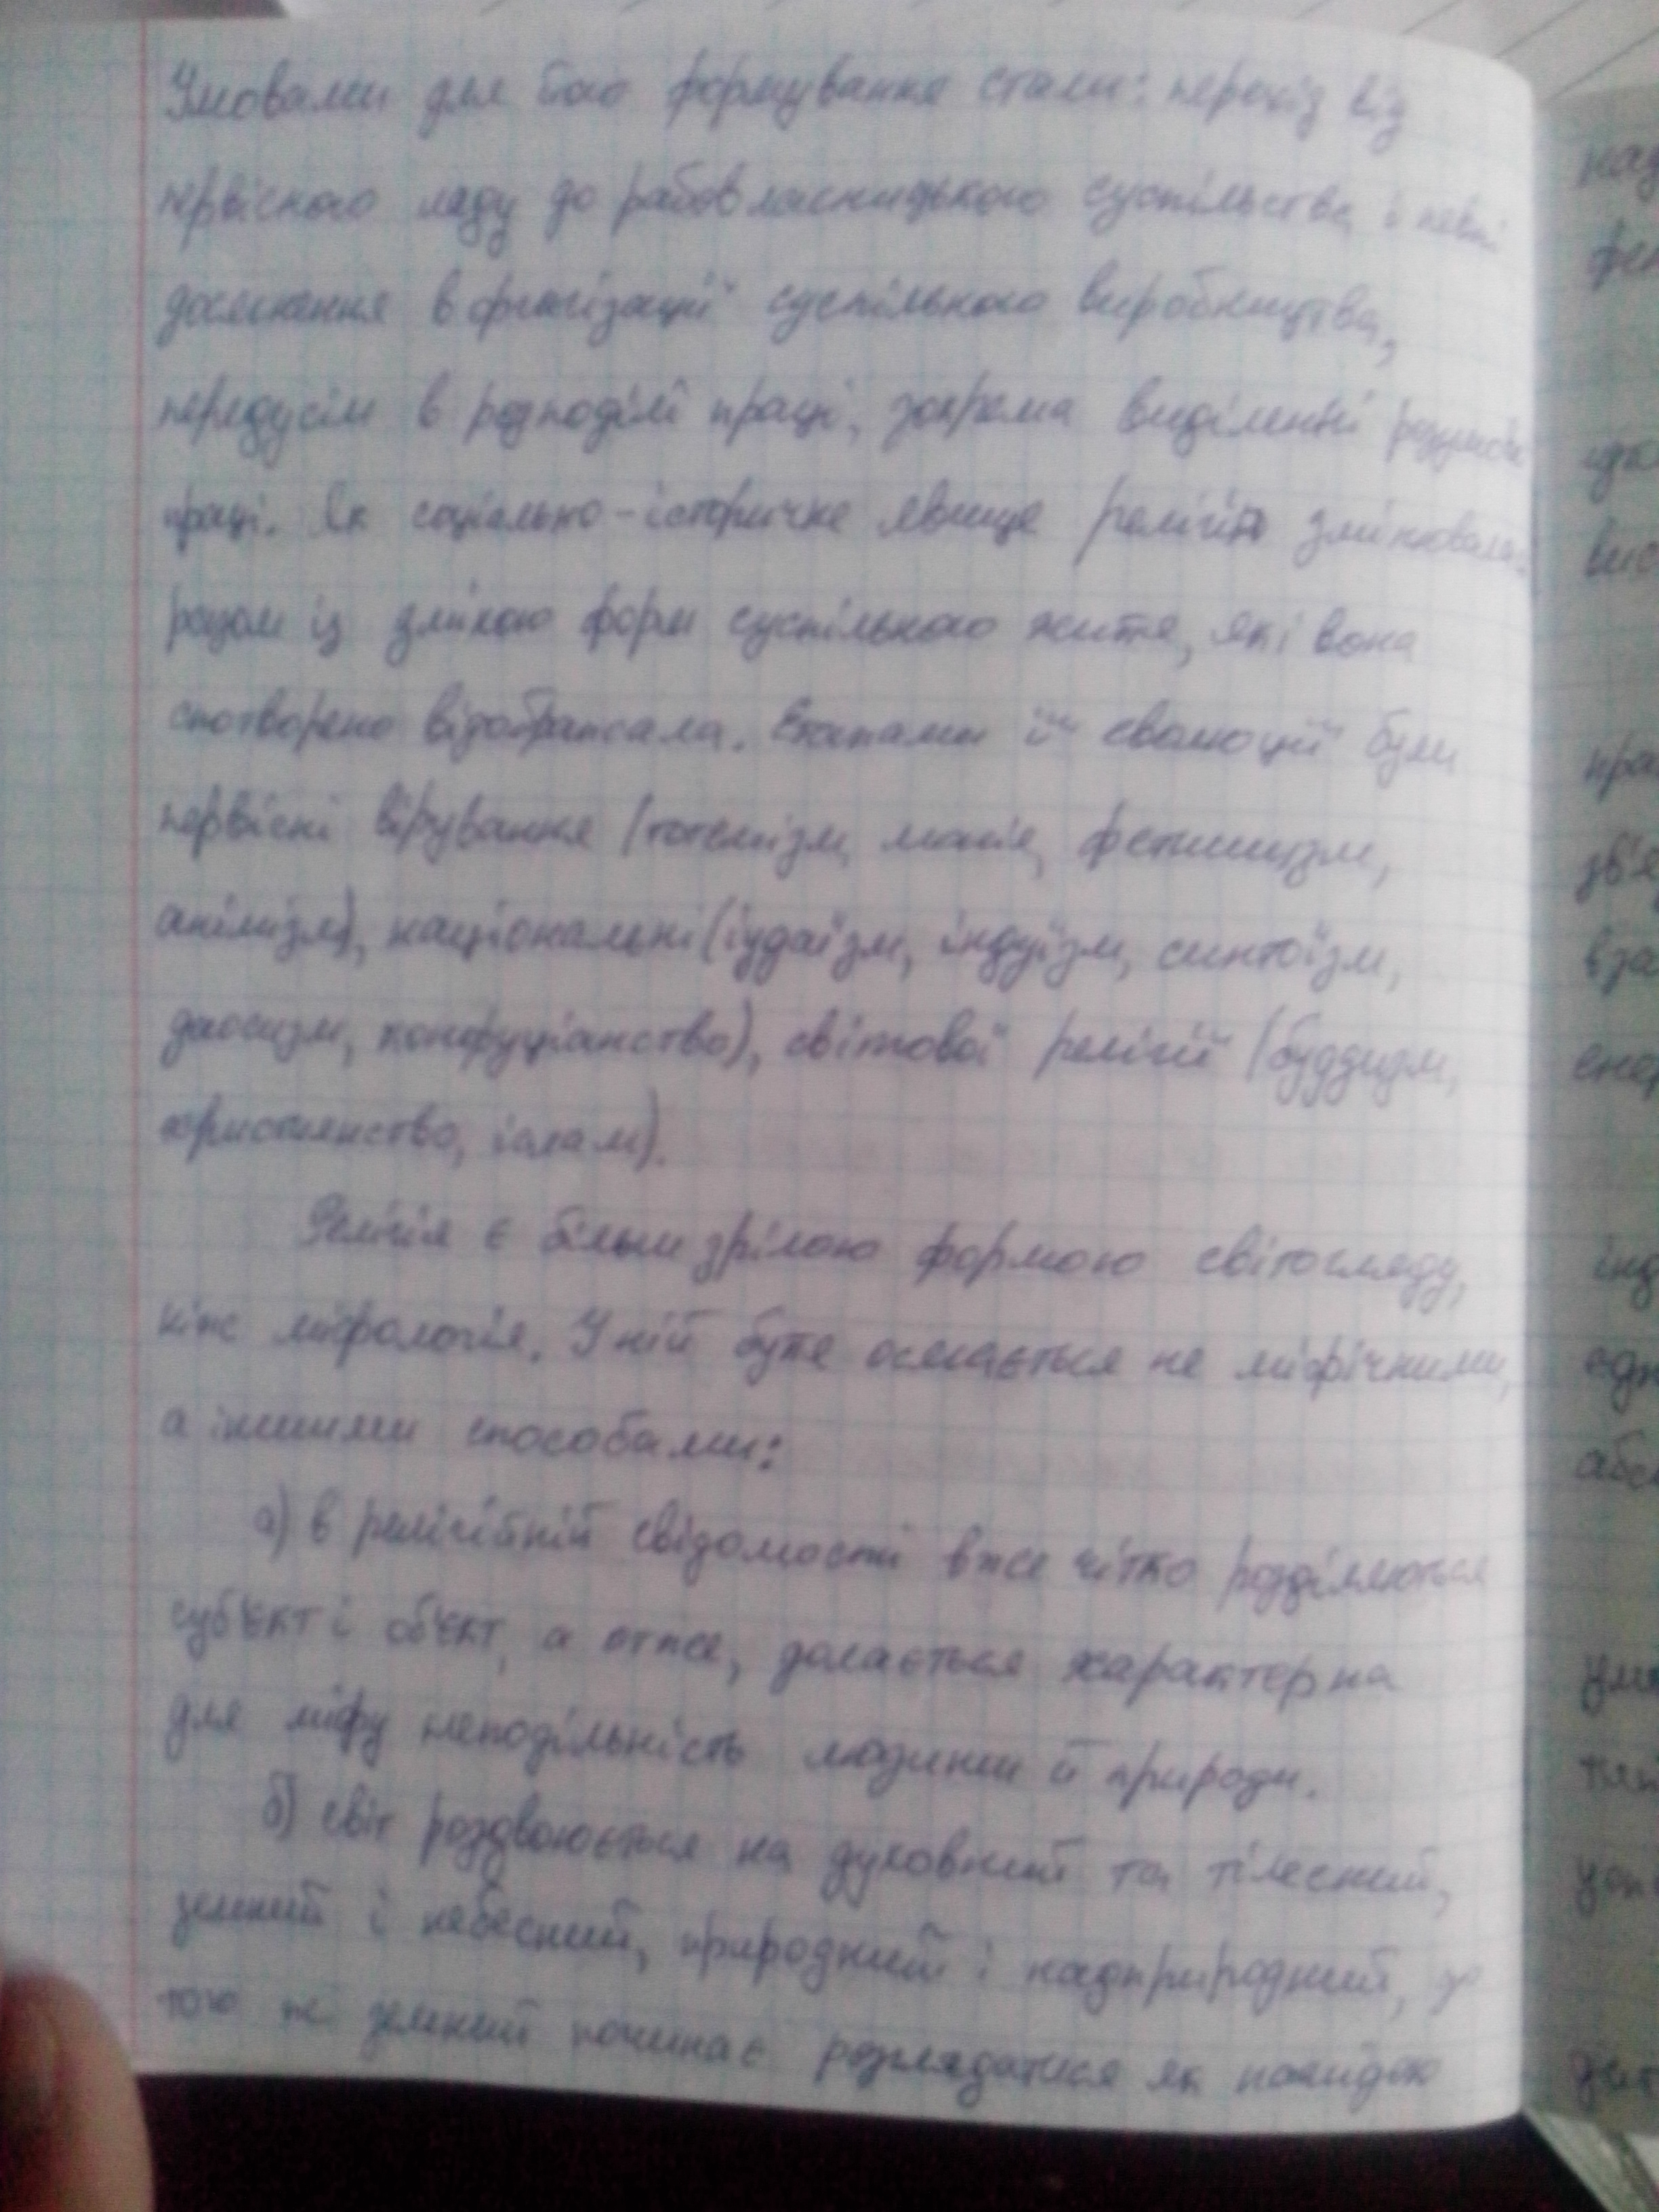 Умовами для його формування стали: перехід від
первісного ладу до рабовласницького суспільства і певні
досягнення в організації суспільного виробництва,
передусім в розподілі праці, зокрема виділенні розумової
праці. Як соціально-історичне явище релігія змінювалась
разом із зміною форм суспільного життя, які вона
спотворено відображала. Етапами її еволюції були
первісні вірування (тотемізм, магія, фетишизм,
анімізм), національні (іудаїзм, індуїзм, синтоїзм,
даосизм, конфуціанство), світової релігії (буддизм,
християнство, іслам).
Релігія є більш зрілою формою світогляду,
ніж міфологія. У ній буття осягається не міфічними,
а іншими способами:
а) в релігійній свідомості вже чітко розділяються
суб'єкт і об'єкт, а отже, долається характерна
для міфу неподільність людини й природи.
б) світ роздвоюється на духовний та тілесний,
земний і небесний, природний і надприродний, до
того ж земний починає розглядатися як наслідок